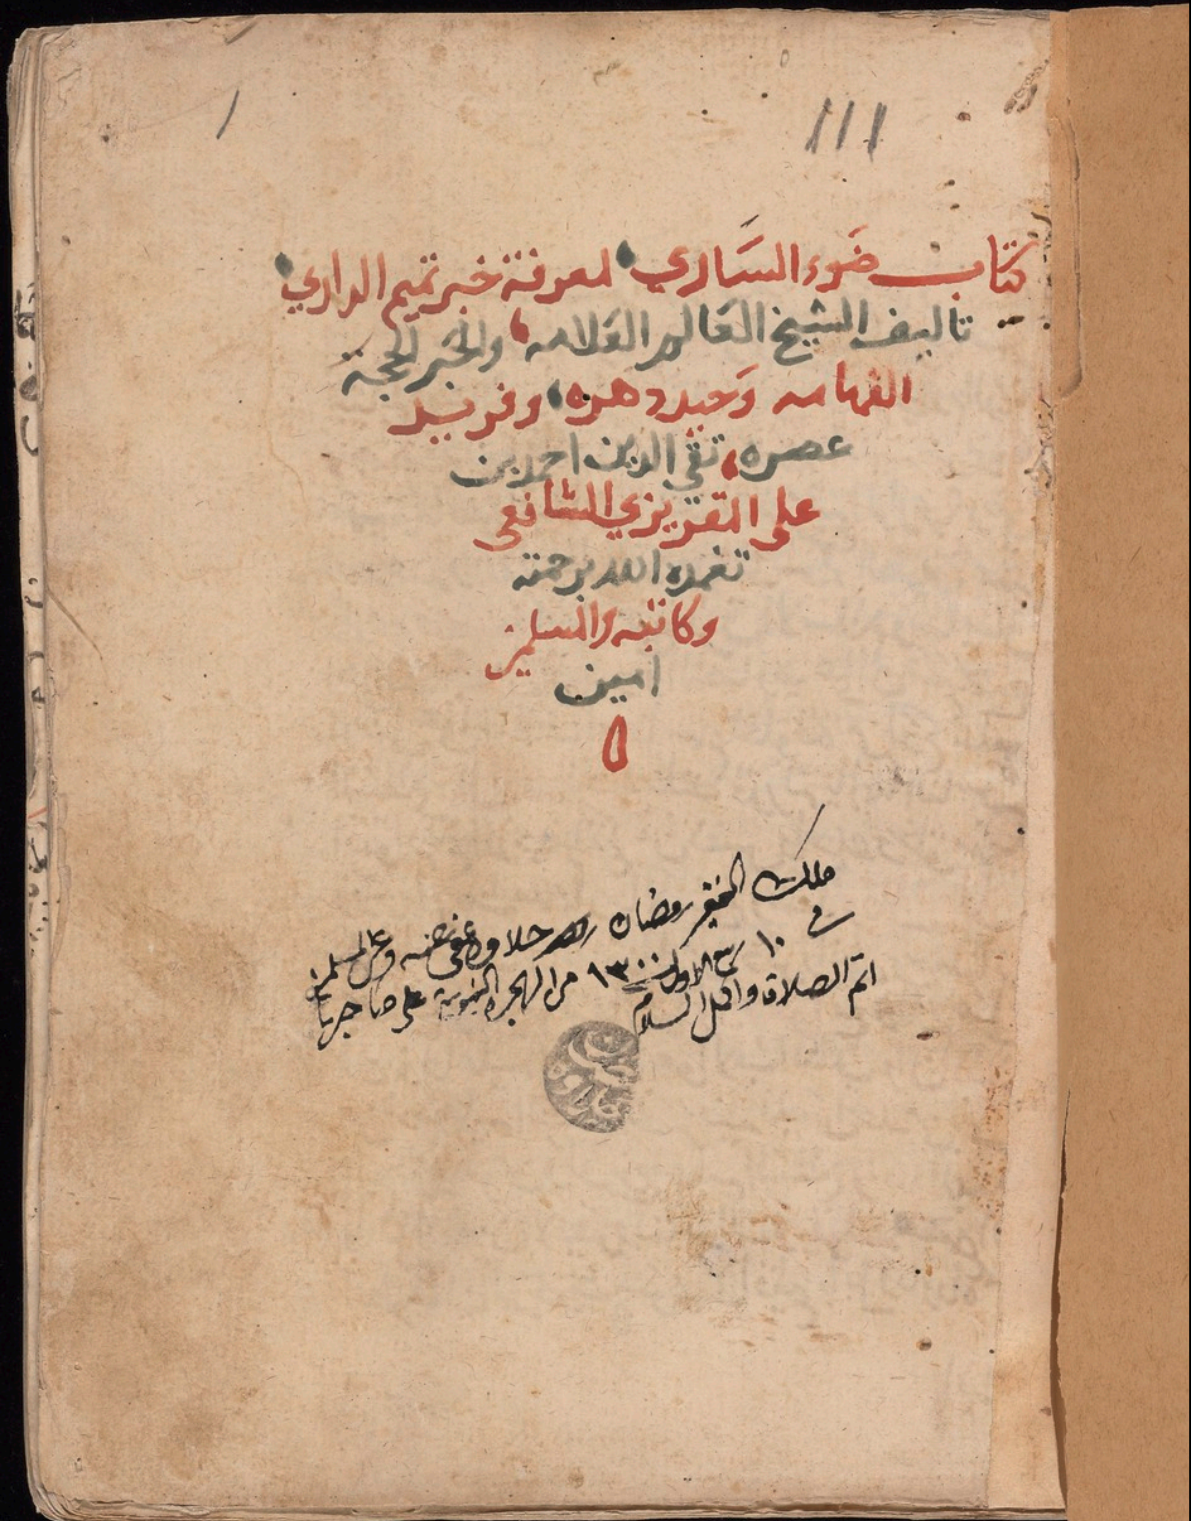 ١١١
١
كتاب ضوء الساري لمعرفة خبر تميم الداري
تاليف الشيخ العالم العلامه والحبر الحجة
الفهامه وحيد دهره وفريد
عصره تقي الدين احمد بن
على المقريزي الشافعى
تغمده الله برحمته
وكاتبه والمسلمين
امين
ملك الفقير رمضان حلاوه عفى عنه وعن المسلمين
فى ١٠ ربيع الاول سنة ١٣٠٠ من الهجرة النبوية على صاحبها
اتم الصلاة واكمل السلام